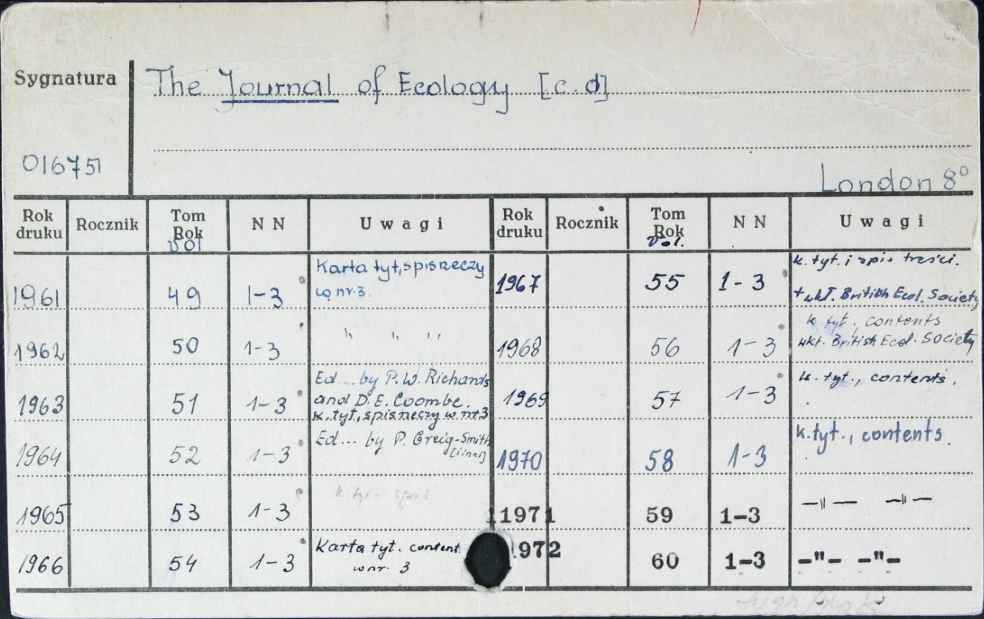 Sygnatura
The Journal of Ecology [c.d]
016751
London 8°
Rok druku Rocznik Tom Rok vol NN Uwagi Rok druku Rocznik Tom Rok vol. NN Uwagi
1961 49 1-3 Karta tyt, spis rzeczy w nr. 3
1962 50 1-3 " " "
1963 51 1-3 Ed... by P.W. Richards and D.E. Coombe. k.tyt, spis rzeczy w nr 3
1964 52 1-3 Ed... by P. Greig-Smith
1965 53 1-3 k. tyt
1966 54 1-3 Karta tyt. content w nr. 3
1967 55 1-3 k. tyt. i spis treści. + wkł. British Ecol. Society
1968 56 1-3 k tyt., contents wkł. British Ecol. Society
1969 57 1-3 k. tyt., contents.
1970 58 1-3 k. tyt., contents.
1971 59 1-3 —"— —"—
1972 60 1-3 —"— —"—